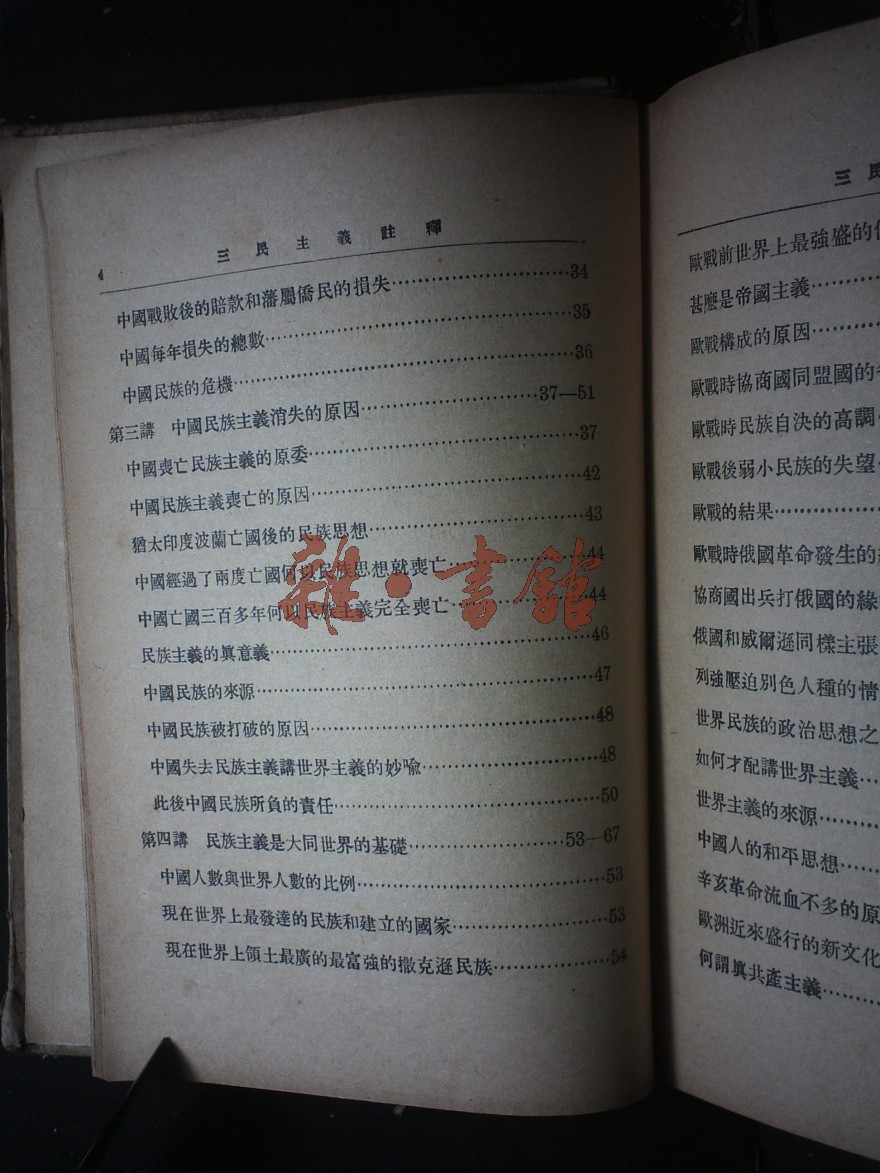 4
三民主義註釋
中國戰敗後的賠款和藩屬僑民的損失…………………34
中國每年損失的總數…………………35
中國民族的危機…………………36
第三講 中國民族主義消失的原因…………………37—51
中國喪亡民族主義的原委…………………37
中國民族主義喪亡的原因…………………42
猶太印度波蘭亡國後的民族思想…………………43
中國經過了兩度亡國何以民族思想就喪亡…………………44
中國亡國三百多年何以民族主義完全喪亡…………………44
民族主義的眞意義…………………46
中國民族的來源…………………47
中國民族被打破的原因…………………48
中國失去民族主義講世界主義的妙喩…………………48
此後中國民族所負的責任…………………50
第四講 民族主義是大同世界的基礎…………………53—67
中國人數與世界人數的比例…………………53
現在世界上最發達的民族和建立的國家…………………53
現在世界上領土最廣的最富強的撒克遜民族…………………54
雜·書館
三民
歐戰前世界上最強盛的
甚麽是帝國主義…………
歐戰構成的原因…………
歐戰時協商國同盟國的
歐戰時民族自決的高調
歐戰後弱小民族的失望
歐戰的結果…………
歐戰時俄國革命發生的
協商國出兵打俄國的緣
俄國和威爾遜同樣主張
列強壓迫別色人種的情
世界民族的政治思想之
如何才配講世界主義…
世界主義的來源…………
中國人的和平思想…………
辛亥革命流血不多的原
歐洲近來盛行的新文化
何謂眞共產主義…………